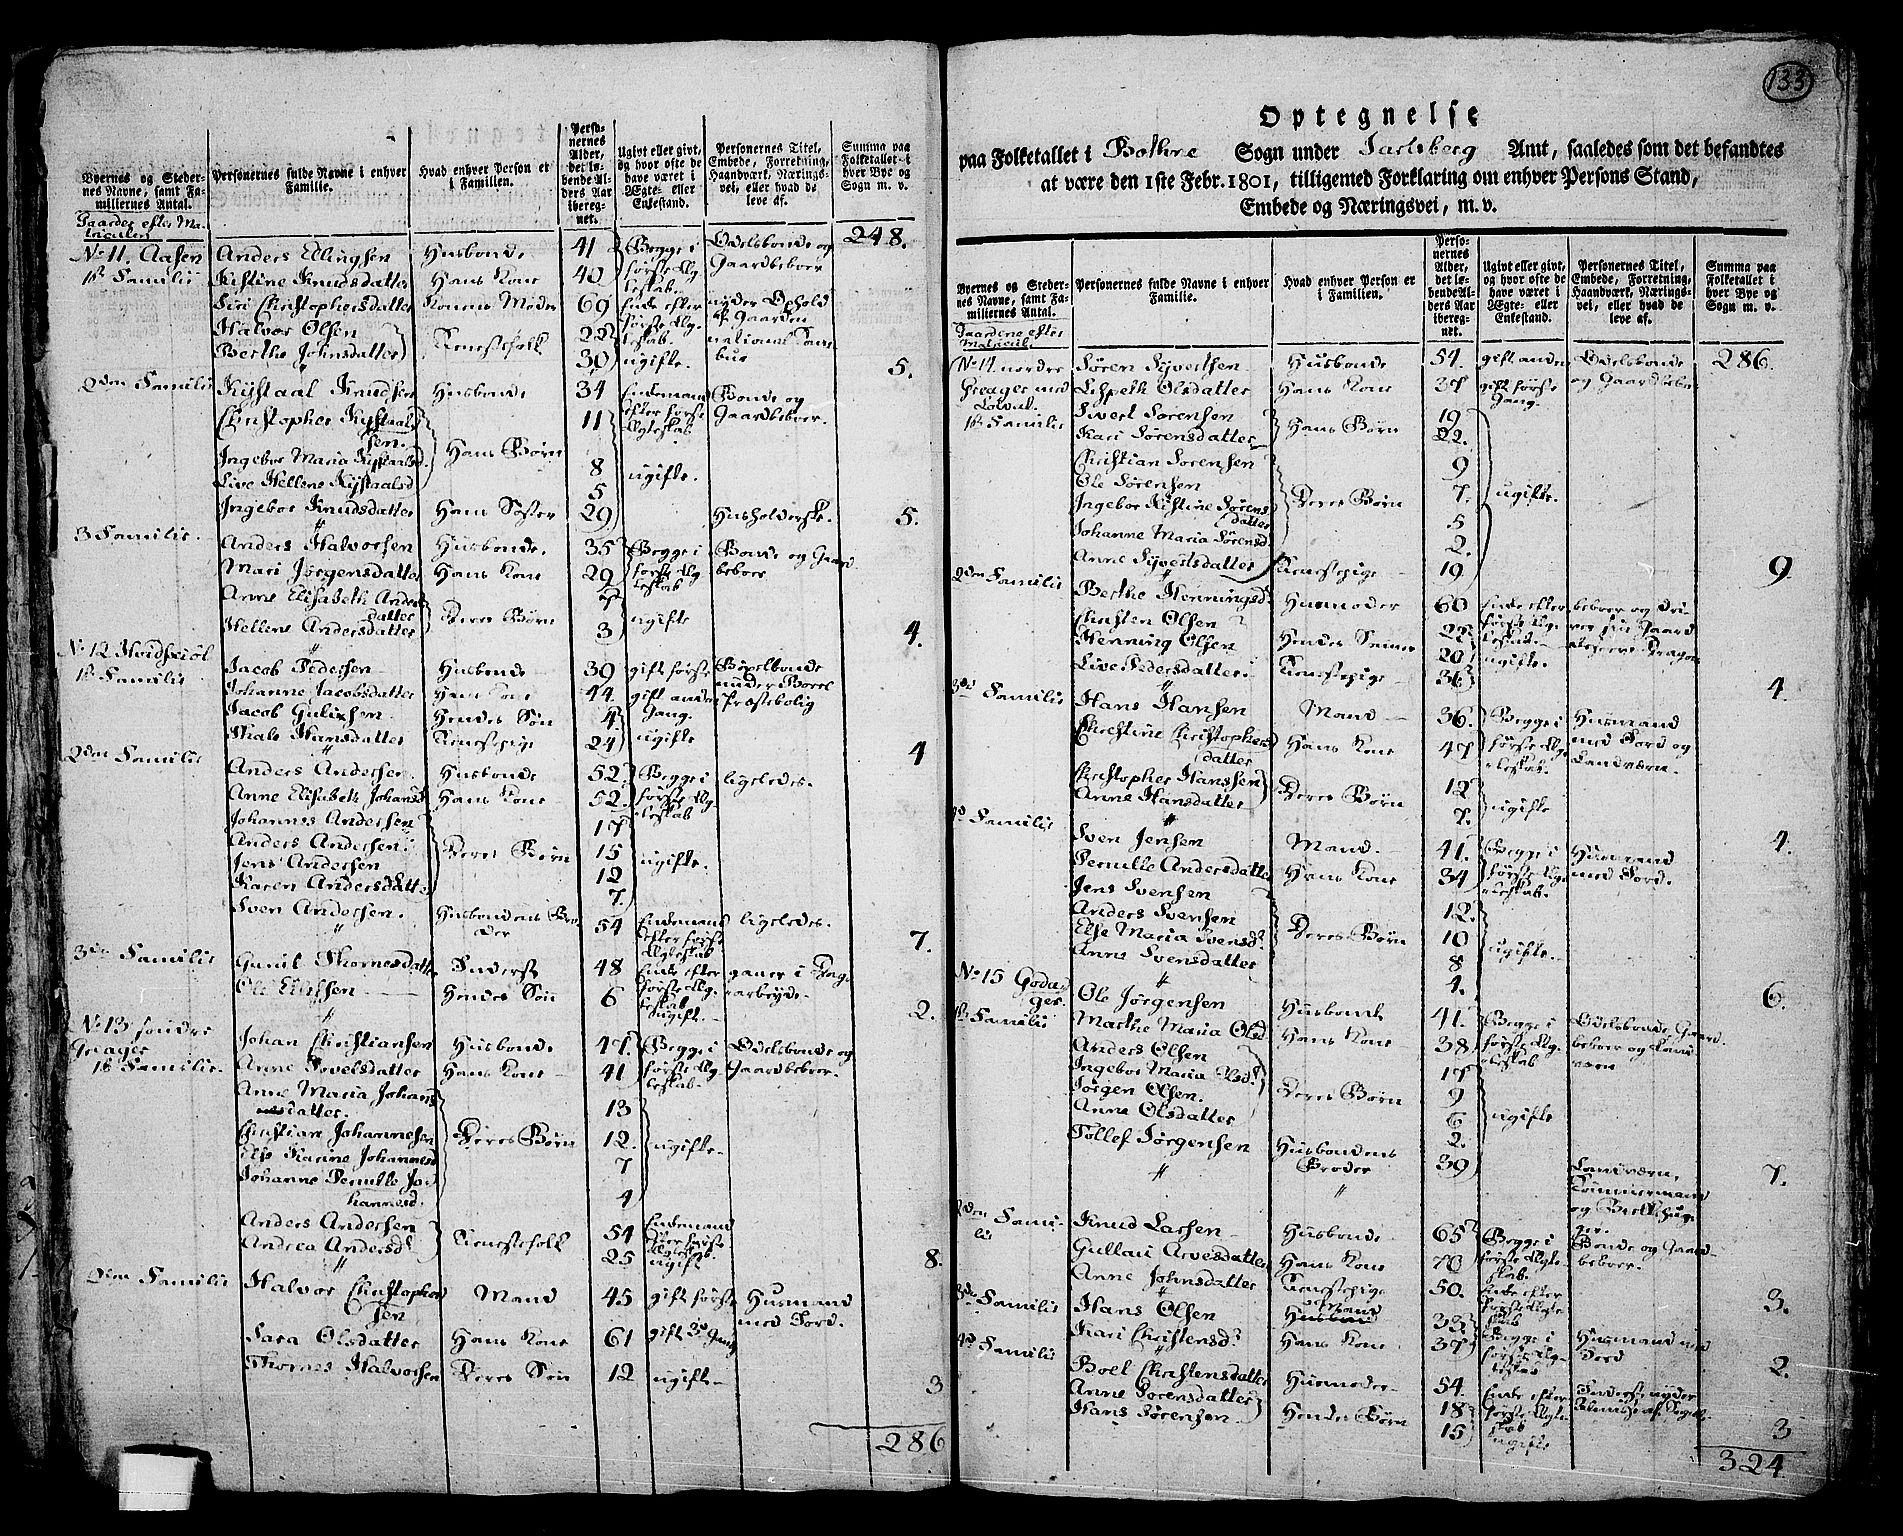 Byernes og Steder-
nes Navne, samt Fa-
miliernes Antal.
Personernes fulde Navne i enhver
Familie.
Hvad enhver Person er
i Familien.
Perso-
nernes
Alder,
det lø-
bende Al-
ders Aar
ibereg-
net.
Ugivt eller givt,
og hvor ofte de
have været i
Ægte- eller
Enkestand.
Personernes Titel,
Embede, Forretning,
Haandværk, Nærings-
vei, eller hvad de
leve af.
Summa paa
Folketallet i
hver Bye og
Sogn m. v.
Gaarder efter Ma-
triculen
248.
No 11. Aasen
1ste Familie
Anders Ellingsen Husbonde 41 Begge i første Ægteskab Odelsbonde og Gaardbeboer
Kistine Knudsdatter Hans Kone 40
Siri Christophersdatter Konens Moder 69 Enke efter første Ægteskab nyder Ophold af Gaarden
Halvor Olsen 22 national
Berthe Johnsdatter Tienestefolk 30 ugifte.
5.
2den Familie
Kystaal Knudsen Husbonde 34 Enkemand efter første Ægteskab Bonde og Gaardbeboer.
Christopher Kystaal
sen. 11
Ingebor Maria Kystaalsd. Hans Børn 8 ugifte.
Live Hellene Kystaalsd 5
Ingebor Knudsdatter Hans Søster 29 Husholderske.
5.
3 Familie.
Anders Halvorsen Husbonde. 35 Begge i første Ægteskab Bonde og Gaardbeboer
Mari Jørgensdatter Hans Kone 29
Anne Elisabeth Anders
datter Deres Børn 7 ugifte
Hellene Andersdatter 3
4.
No 12
1ste Familie
Jacob Pedersen Husbonde 39 gift første Bøxelbonde under Præstebolig
Johanne Jacobsdatter Hans Kone 44. gift anden Gang.
Jacob Hendes Søn 4
Hansdatter Tienestepige 24 ugifte
4
2den Familie
Anders Andersen Husbonde 52. Begge i første Ægteskab ligeledes.
Anne Elisabeth Johansd Hans Kone 52.
Johannes Andersen 17
Anders Andersen. Deres Børn 15 ugifte.
Jens Andersen 12
Karen Andersdatter 7.
Sven Andersen. Husbondens Broder 54 Enkemand efter første Ægteskab ligeledes.
7.
3die Familie
Gunil Thornesdatter Inderst 48 Enke efter første Ægteskab gaaer i Dagarbeyde.
Ole Hendes Søn 6 ugift.
2.
No 13 søndre
Greager
1ste Familie.
Johan Christiansen Husbonde 47. Begge i første Ægteskab Odelsbonde og Gaardbeboer.
Anne Hans Kone 41
Anne Maria Johans
datter. 13
Christian Johannesen Deres Børn 12. ugifte
Else Karine Johannesd 7
Johanne Pernille Jo
hannesd. 4
Anders Andersen Tienestefolk 54 Enkemand efter første Ægteskab
Andrea Andersd 25 ugift
8.
2den Familie
Halvor Christopher
sen Mand 45 gift første Husmand med Jord.
Sara Olsdatter Hans Kone 61 gift 3de Gang
Thornes Halvorsen Deres Søn 12 ugift
3
286
133
Optegnelse
paa Folketallet i Bothne Sogn under Jarlsberg Amt, saaledes som det befandtes
at være den 1ste Febr. 1801, tilligemed Forklaring om enhver Persons Stand,
Embede og Næringsvei, m. v.
Byernes og Steder-
nes Navne, samt Fa-
miliernes Antal.
Personernes fulde Navne i enhver
Familie.
Hvad enhver Person er
i Familien.
Perso-
nernes
Alder,
det lø-
bende Al-
ders Aar
ibereg-
net.
Ugivt eller givt,
og hvor ofte de
have været i
Ægte- eller
Enkestand.
Personernes Titel,
Embede, Forretning,
Haandværk, Nærings-
vei, eller hvad de
leve af.
Summa paa
Folketallet i
hver Bye og
Sogn m. v.
Gaardene efter
Matricul.
286.
No 14 nordre
Greager med
1ste Familie
Søren Syvertsen Husbonde 54. gift anden Odelsbonde og Gaardbeboer
Lispeth Olsdatter Hans Kone 37 gift første Gang.
Sivert Sørensen Hans Børn 19
Kari Sørensdatter 22.
Christian Sørensen 9
Ole Sørensen 7. ugifte.
Ingebor Kistine Sørens
datter Deres Børn 5
Johanne Maria Sørensd 2.
Anne Syvertsdatter Tienestepige 19
9
2den Familie
Berthe Henningsd. Husmoder 60 Enke efter første Ægteskab beboer og driver sin Gaard
Christen Olsen 22
Henning Olsen Hendes Sønner 20 ugifte.
Live Pedersdatter. Tienestepige 36
4
3die Familie
Hans Hansen Mand 36. Begge i første Ægteskab. Husmand med Jord og Landværn.
Christine Christophers
datter Hans Kone 47
Christopher Hanssen Deres Børn 12 ugifte
Anne Hansdatter 7.
4.
4d Familie
Sven Jensen Mand 41. Begge i første Ægteskab. Husmand med Jord.
Pernille Andersdatter Hans Kone 34
Jens Svensen 12.
Anders Svensen Deres Børn 10 ugifte.
Else Maria Svensd. 8
Anne Svensdatter 4.
6.
No 15 Goda-
ger.
1ste Familie
Ole Jørgensen Husbonde 41. Begge i første Ægteskab Odelsbonde Gaardbeboer og
Marthe Maria Olsd Hans Kone 38.
Anders Olsen 17
Ingebor Maria Olsd. Deres Børn 9 ugifte
Jørgen Olsen. 6
Anne Olsdatter 2.
Tollef Jørgensen Husbondens Broder 39 Landværn, Tømmermand og
7.
2den Fami-
lie
Knud Larsen Husbonde 65 Begge i første Ægteskab. Bonde og Gaardbeboer.
Gullau Arvesdatter Hans Kone 70
Anne Johnsdatter Tienestepige 50. Enke efter første Ægteskab
3.
3die Familie
Hans Olsen Mand 33. Begge i første Ægteskab Husmand med Jord
Kari Christensd. Hans Kone 37
2.
4d Familie
Boel Christensdatter Husmoder 54. Enke efter første Ægteskab Inderste nyder
Anne Sørensdatter Hendes Børn 18 ugifte
Hans Sørensen 15
3
324